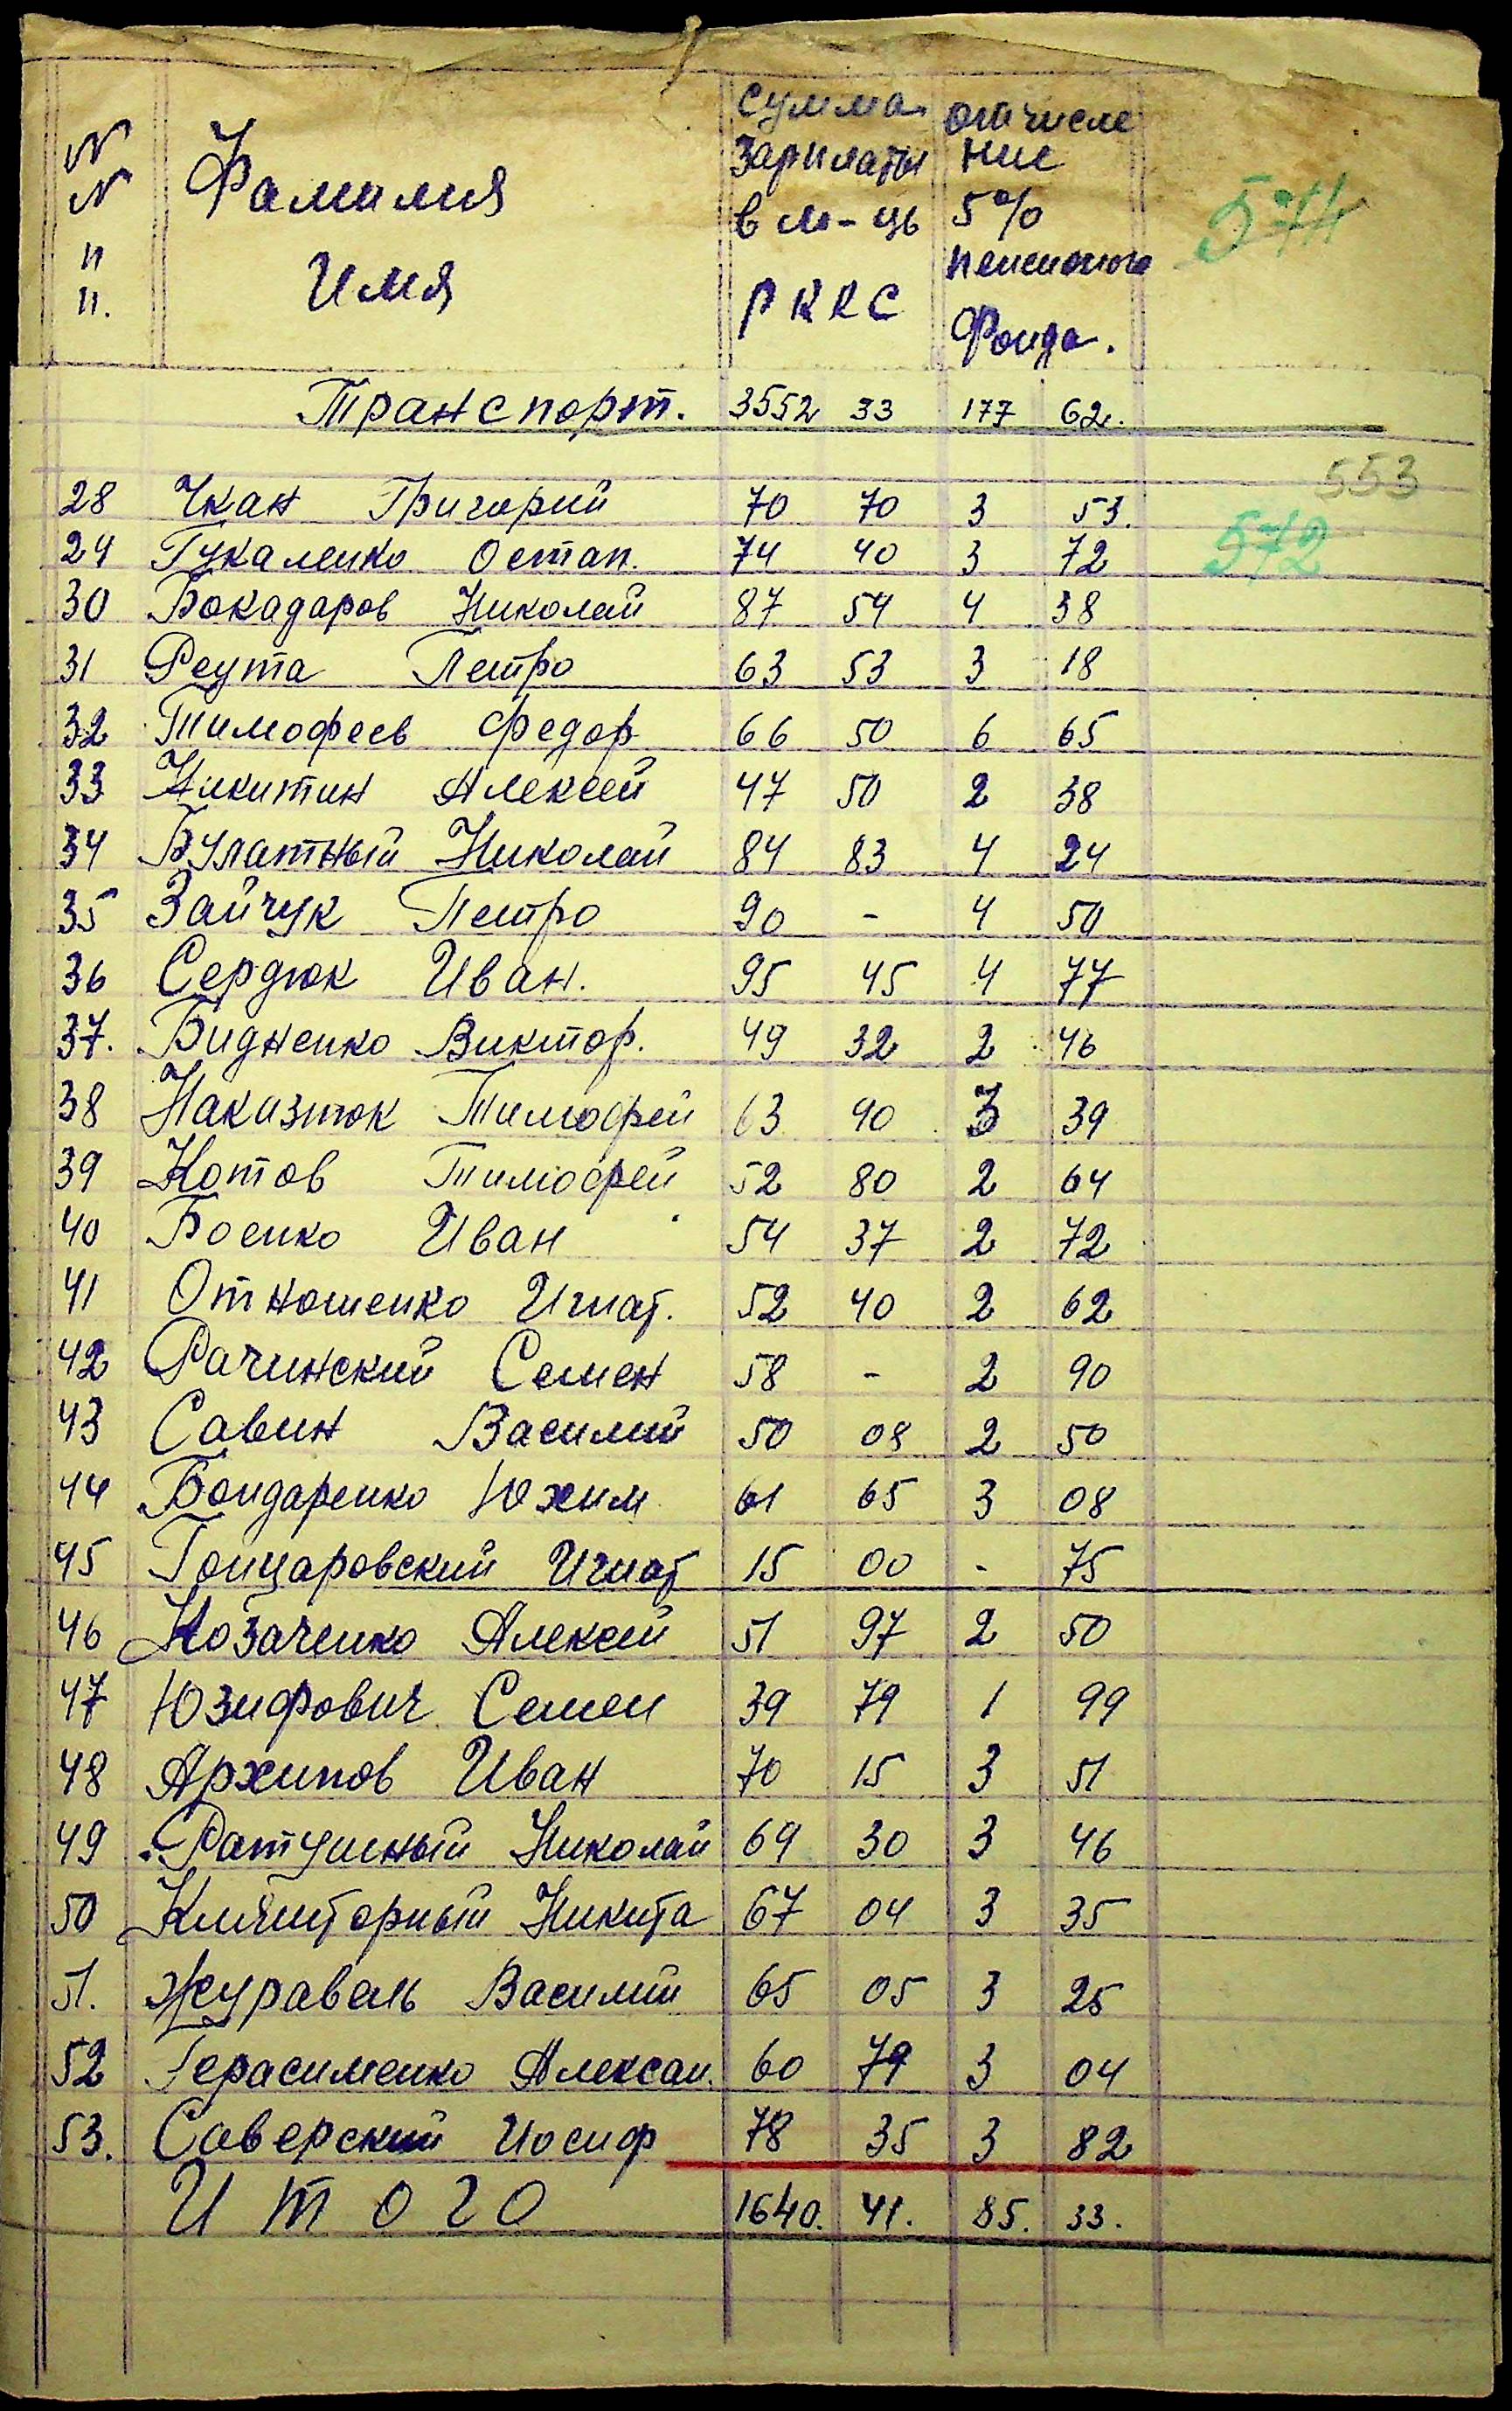 N N п п. Фамилия Имя сумма зарплаты в м-ць РККС отчисление 5% пенсионого Фонда.
574
Транспорт. 3552 33 177 62.
553
28 Чкан Григорий 70 70 3 53.
572
29 Гукаленко Остап. 74 40 3 72
30 Бокадаров Николай 87 54 4 38
31 Реута Петро 63 53 3 18
32 Тимофеев Федор 66 50 6 65
33 Никитин Алексей 47 50 2 38
34 Булатный Николай 84 83 4 24
35 Зайчук Петро 90 - 4 50
36 Сердюк Иван. 95 45 4 77
37. Бидненко Виктор. 49 32 2 46
38 Наказтюк Тимофей 63 90 3 39
39 Котов Тимофей 52 80 2 64
40 Боенко Иван 54 37 2 72
41 Отношенко Игнат. 52 40 2 62
42 Рачинский Семен 58 - 2 90
43 Савин Василий 50 08 2 50
44 Бондаренко Юхим 61 65 3 08
45 Гонцаровский Игнат 15 00 - 75
46 Козаченко Алексей 51 97 2 50
47 Юзифович Семен 39 79 1 99
48 Архипов Иван 70 15 3 51
49 Ратушный Николай 69 30 3 46
50 Никита 67 04 3 35
51. Журавель Василий 65 05 3 25
52 Герасименко Алексан. 60 79 3 04
53. Саверский Иосиф 78 35 3 82
Итого 1640. 41. 85. 33.